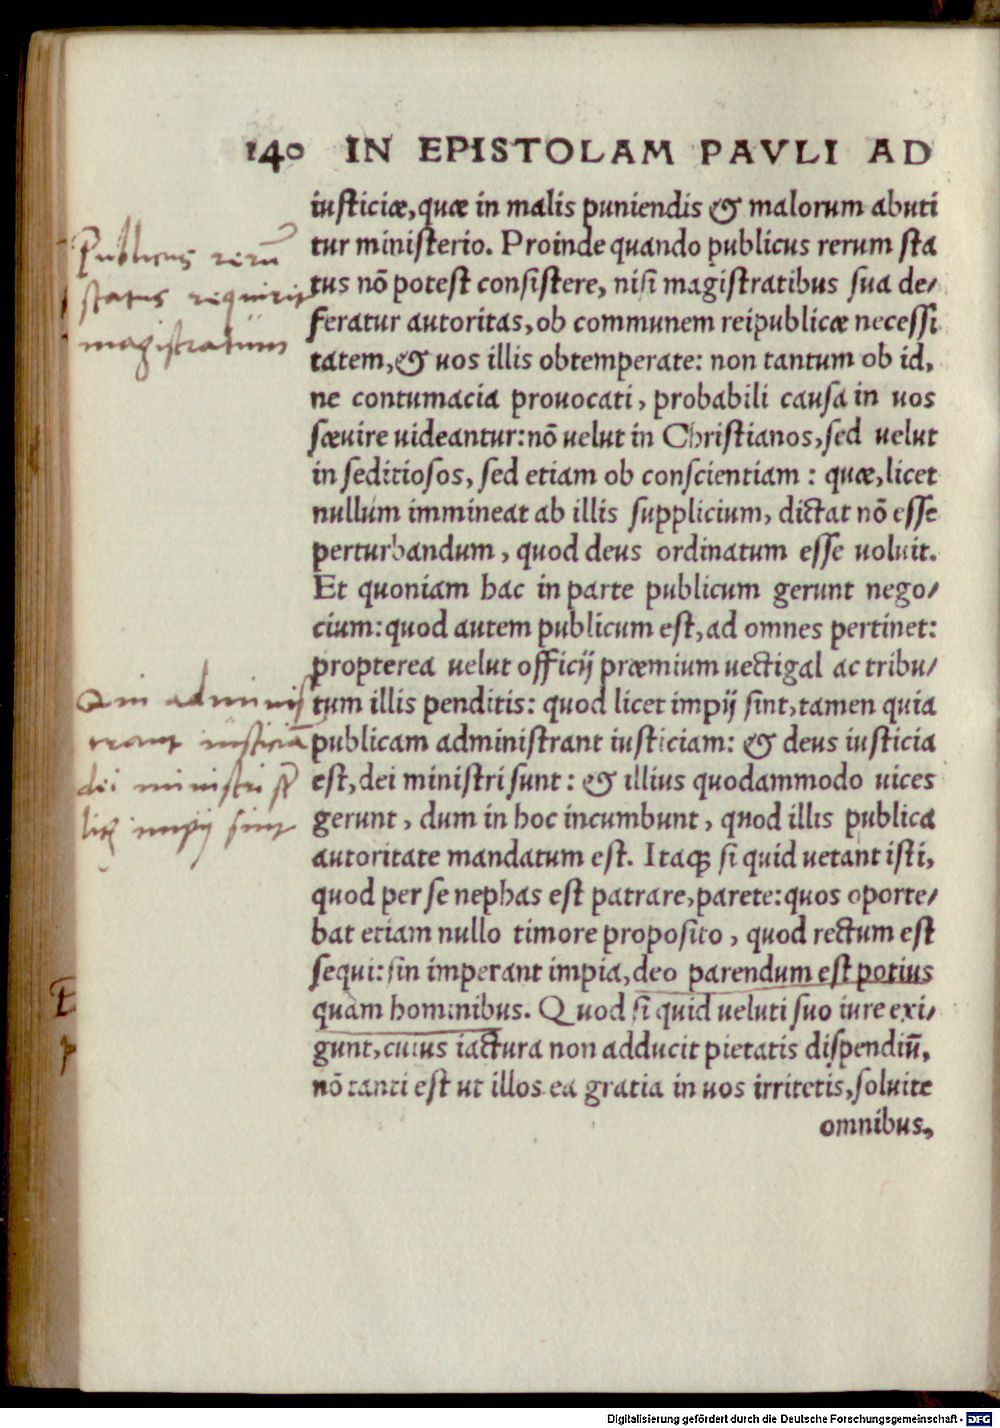 140 IN EPISTOLAM PAVLI AD
iusticiæ, quæ in malis puniendis & malorum abuti
tur ministerio. Proinde quando publicus rerum sta
tus nõ potest consistere, nisi magistratibus sua de/
feratur autoritas, ob communem reipublicæ necessi
tatem, & uos illis obtemperate: non tantum ob id,
ne contumacia prouocati, probabili causa in uos
sæuire uideantur: nõ uelut in Christianos, sed uelut
in seditiosos, sed etiam ob conscientiam : quæ, licet
nullum immineat ab illis supplicium, dictat nõ esse
perturbandum, quod deus ordinatum esse uoluit.
Et quoniam hac in parte publicum gerunt nego/
cium: quod autem publicum est, ad omnes pertinet:
propterea uelut officij præmium uectigal ac tribu/
tum illis penditis: quod licet impij sint, tamen quia
publicam administrant iusticiam: & deus iusticia
est, dei ministri sunt: & illius quodammodo uices
gerunt, dum in hoc incumbunt, quod illis publica
autoritate mandatum est. Itaq; si quid uetant isti,
quod per se nephas est patrare, parete: quos oporte/
bat etiam nullo timore proposito, quod rectum est
sequi: sin imperant impia, deo parendum est potius
quàm hominibus. Quod si quid ueluti suo iure exi/
gunt, cuius iactura non adducit pietatis dispendiũ,
nõ tanti est ut illos ea gratia in uos irritetis, soluite
omnibus,
Publicus rerũ
status requirit
magistratum
Qui adminis
trant iusticiã
dei ministri st
licet impij sint
Digitalisierung gefördert durch die Deutsche Forschungsgemeinschaft - DFG